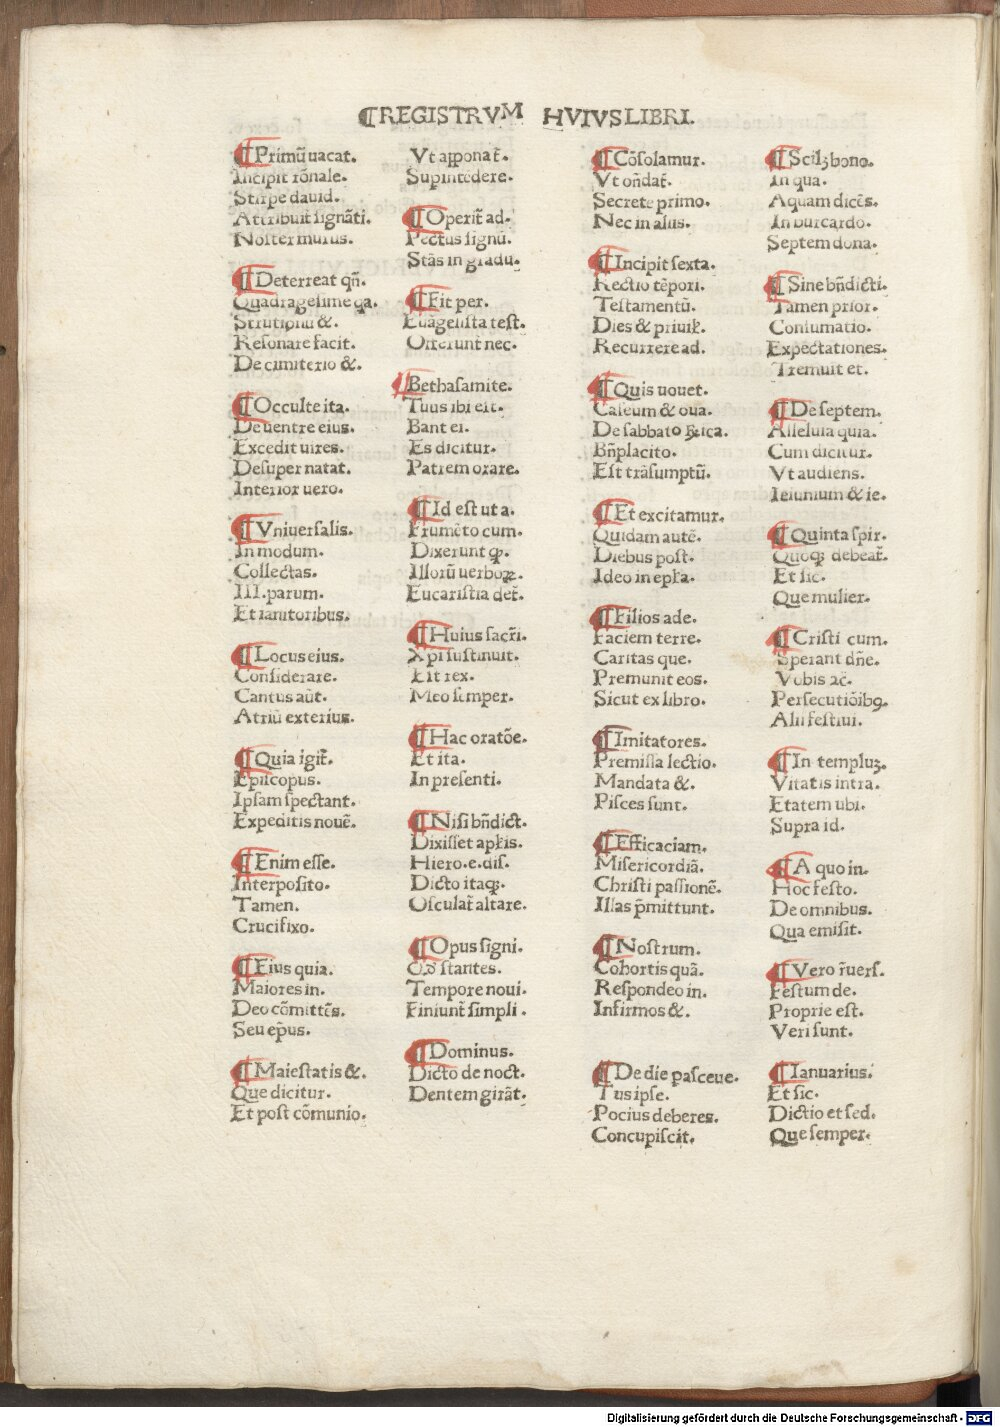 ¶REGISTRVM HVIVS LIBRI.
¶Primũ uacat.
Incipit rõnale.
Stirpe dauid.
Attribuit signãti.
Noster murus.
¶Deterreat qñ.
Quadragesime qa.
Strutiniũ &.
Resonare facit.
De cimiterio &.
¶Occulte ita.
De uentre eius.
Excedit uires.
Desuper natat.
Interior uero.
¶Vniuersalis.
In modum.
Collectas.
III. parum.
Et ianitoribus.
¶Locus eius.
Considerare.
Cantus aũt.
Atriũ exterius.
¶Quia igit̃.
Episcopus.
Ipsam spectant.
Expeditis nouẽ.
¶Enim esse.
Interposito.
Tamen.
Crucifixo.
¶Eius quia.
Maiores in.
Deo cõmittẽs.
Seu ep̃us.
¶Maiestatis &.
Que dicitur.
Et post cõmunio.
Vt apponat̃.
Supintẽdere.
¶Operit̃ ad.
Pectus signũ.
Stãs in gradu.
¶Fit per.
Euãgelista test.
Offerunt nec.
¶Bethasamite.
Tuus ibi est.
Bant ei.
Es dicitur.
Patrem orare.
¶Id est ut a.
Frumẽto cum.
Dixerunt qꝫ.
Illorũ uerboꝝ.
Eucaristia det̃.
¶Huius sacr̃i.
Xpi sustinuit.
Eit rex.
Meo semper.
¶Hac oratõe.
Et ita.
In presenti.
¶Nisi bñdict.
Dixisset apl̃is.
Hiero.e.dis.
Dicto itaqꝫ.
Osculat̃ altare.
¶Opus signi.
Qd̃ stantes.
Tempore noui.
Finiunt̃ simpli.
¶Dominus.
Dicto de noct.
Dentem girãt.
¶Cõsolamur.
Vt oñdat̃.
Secrete primo.
Nec in aliis.
¶Incipit sexta.
Rectio tẽpori.
Testamentũ.
Dies & priuil̃.
Recurrere ad.
¶Quis uouet.
Caseum & oua.
De sabbato
Bñplacito.
Est trãsumptũ.
¶Et excitamur.
Quidam autẽ.
Diebus post.
Ideo in epl̃a.
¶Filios ade.
Faciem terre.
Caritas que.
Premunit eos.
Sicut ex libro.
¶Imitatores.
Premissa lectio.
Mandata &.
Pisces sunt.
¶Efficaciam.
Misericordiã.
Christi passionẽ.
Illas p̃mittunt.
¶Nostrum.
Cohortis quã.
Respondeo in.
Infirmos &.
¶De die pasceue.
Tus ipse.
Pocius deberes.
Concupiscit.
¶Scilꝫ bono.
In qua.
Aquam dicẽs.
In burcardo.
Septem dona.
¶Sine bñdicti.
Tamen prior.
Consumatio.
Expectationes.
Tremuit et.
¶De septem.
Alleluia quia.
Cum dicitur.
Vt audiens.
Ieiunium & ie.
¶Quinta spir.
Quoqꝫ debeat̃.
Et sic.
Que mulier.
¶Cristi cum.
Sperant dñe.
Vobis ac̃.
Persecutiõibꝯ.
Alii festiui.
¶In templuꝫ.
Vitatis intra.
Etatem ubi.
Supra id.
¶A quo in.
Hoc festo.
De omnibus.
Qua emisit.
¶Vero r̃uers.
Festum de.
Proprie est.
Veri sunt.
¶Ianuarius.
Et sic.
Dictio et sed.
Que semper.
Digitalisierung gefördert durch die Deutsche Forschungsgemeinschaft - DFG